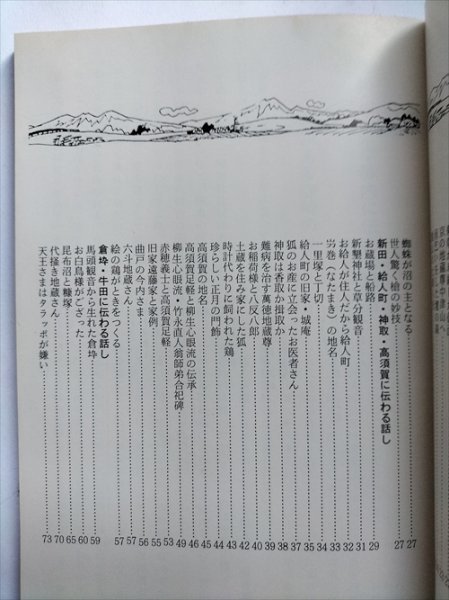 蜘蛛が沼の主となる……27
世人驚く槍の妙技……27
新田・給人町・神取・高須賀に伝わる話し
お蔵場と船路……29
新墾神社と草分観音……31
お給人が住人だから給人町……32
巻(なたまき)の地名……33
一里塚と丁切……34
給人町の旧家・城庵……35
狐のお産に立会ったお医者さん……35
神取は香取か揖取か……37
難病を治す萬徳地蔵尊……38
お稲荷様と八郎……39
土蔵を住み家にした狐……40
時計代わりに飼われた鶏……42
珍らしい正月の門飾……43
高須賀の地名……44
高須賀足軽と柳生心眼流……45
柳生心眼流の伝承……46
柳生心眼流・竹永直人翁師弟合祀碑……49
赤穂義士と高須賀足軽……53
旧家遠藤家と家例……55
曲戸の今寺さま……56
六斗地蔵さん……57
絵の鶏がときをつくる……57
倉埣・牛田に伝わる話し
馬頭観音から生れた倉埣……59
お白鳥様がござった……60
昆布沼と糠塚……65
代掻き地蔵さん……70
天王さまはタラッポが嫌い……73